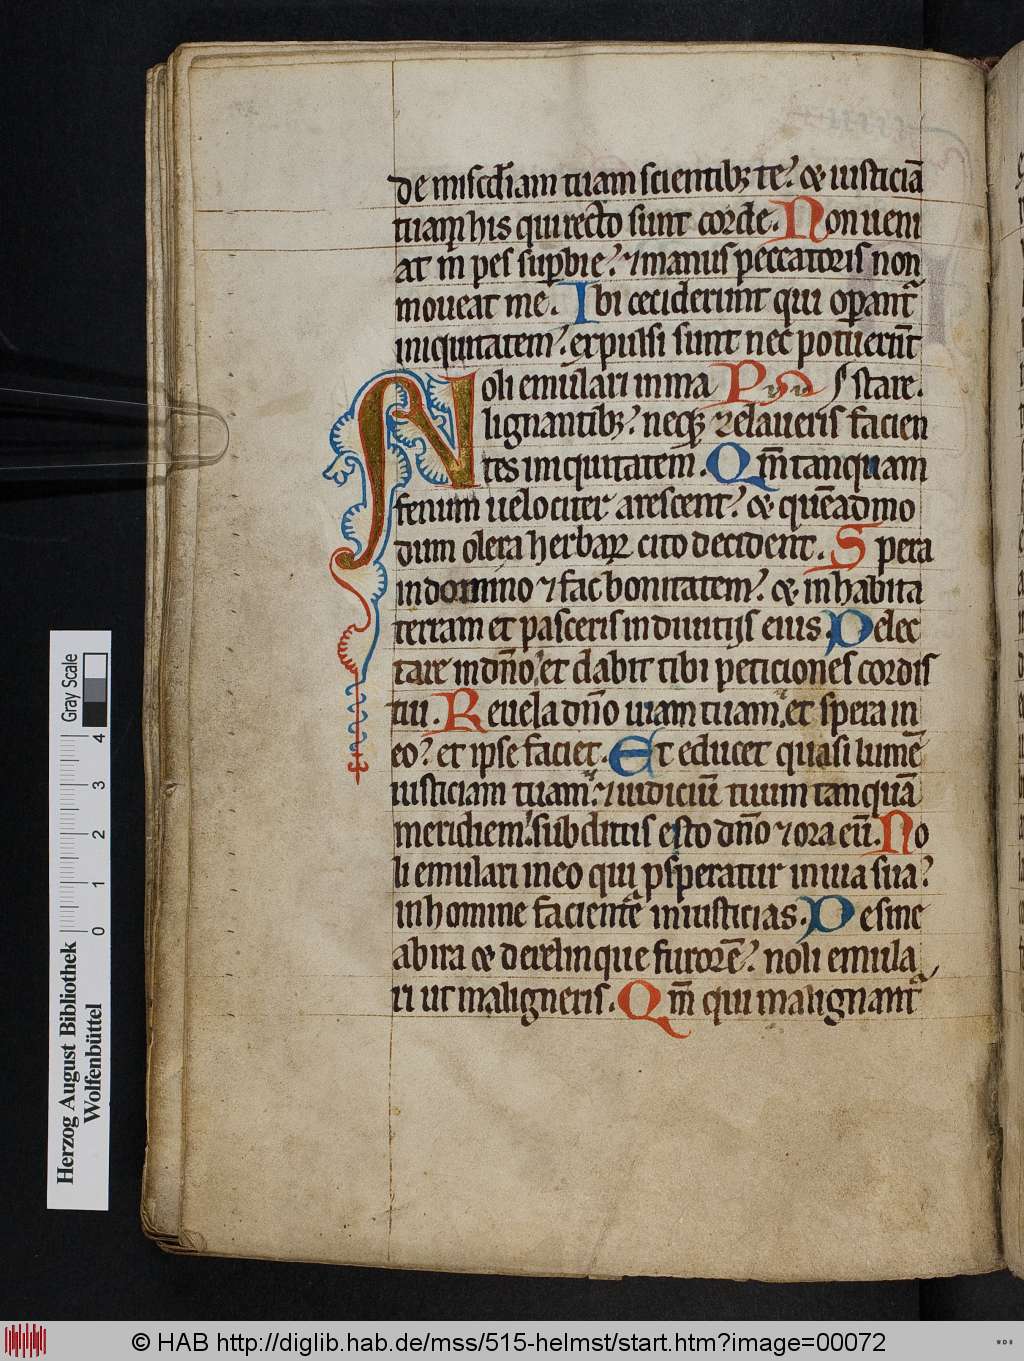 de misc̄diam tuam scientibꝫ te? & iusticiā
tuam his qui recto sunt corde. Non ueni
at m̄ pes suꝑbie? ⁊ manus peccatoris non
moueat me. Ibi ceciderunt qui oꝑantᷣ
iniquitatem? expulsi sunt nec potuerūt
Noli emulari in ma stare.
lignantibꝫ? neqꝫ zelaueris facien
tes iniquitatem. Qm̄ tanquam
fenum uelociter arescent? & quēadmo
dum olera herbaꝝ cito decident. Spera
in domino ⁊ fac bonitatem? & inhabita
terram et pasceris in diuitijs eius. Delec
tare in dn̄o, et dabit tibi peticiones cordis
tui. Reuela dn̄o uiam tuam, et spera in
eo? et ipse faciet. Et educet quasi lumē
iusticiam tuam? ⁊ iudiciū tuum tanquā
meridiem, subditus esto dn̄o ⁊ ora eū. No
li emulari in eo qui ꝓsperatur in uia sua?
in homine faciente iniusticias. Desine
ab ira & derelinque furorē? noli emula
ri ut maligneris. Qm̄ qui malignantᷣ
Gray Scale
4 3 2 1 0
Herzog August Bibliothek
Wolfenbüttel
© HAB http://diglib.hab.de/mss/515-helmst/start.htm?image=00072